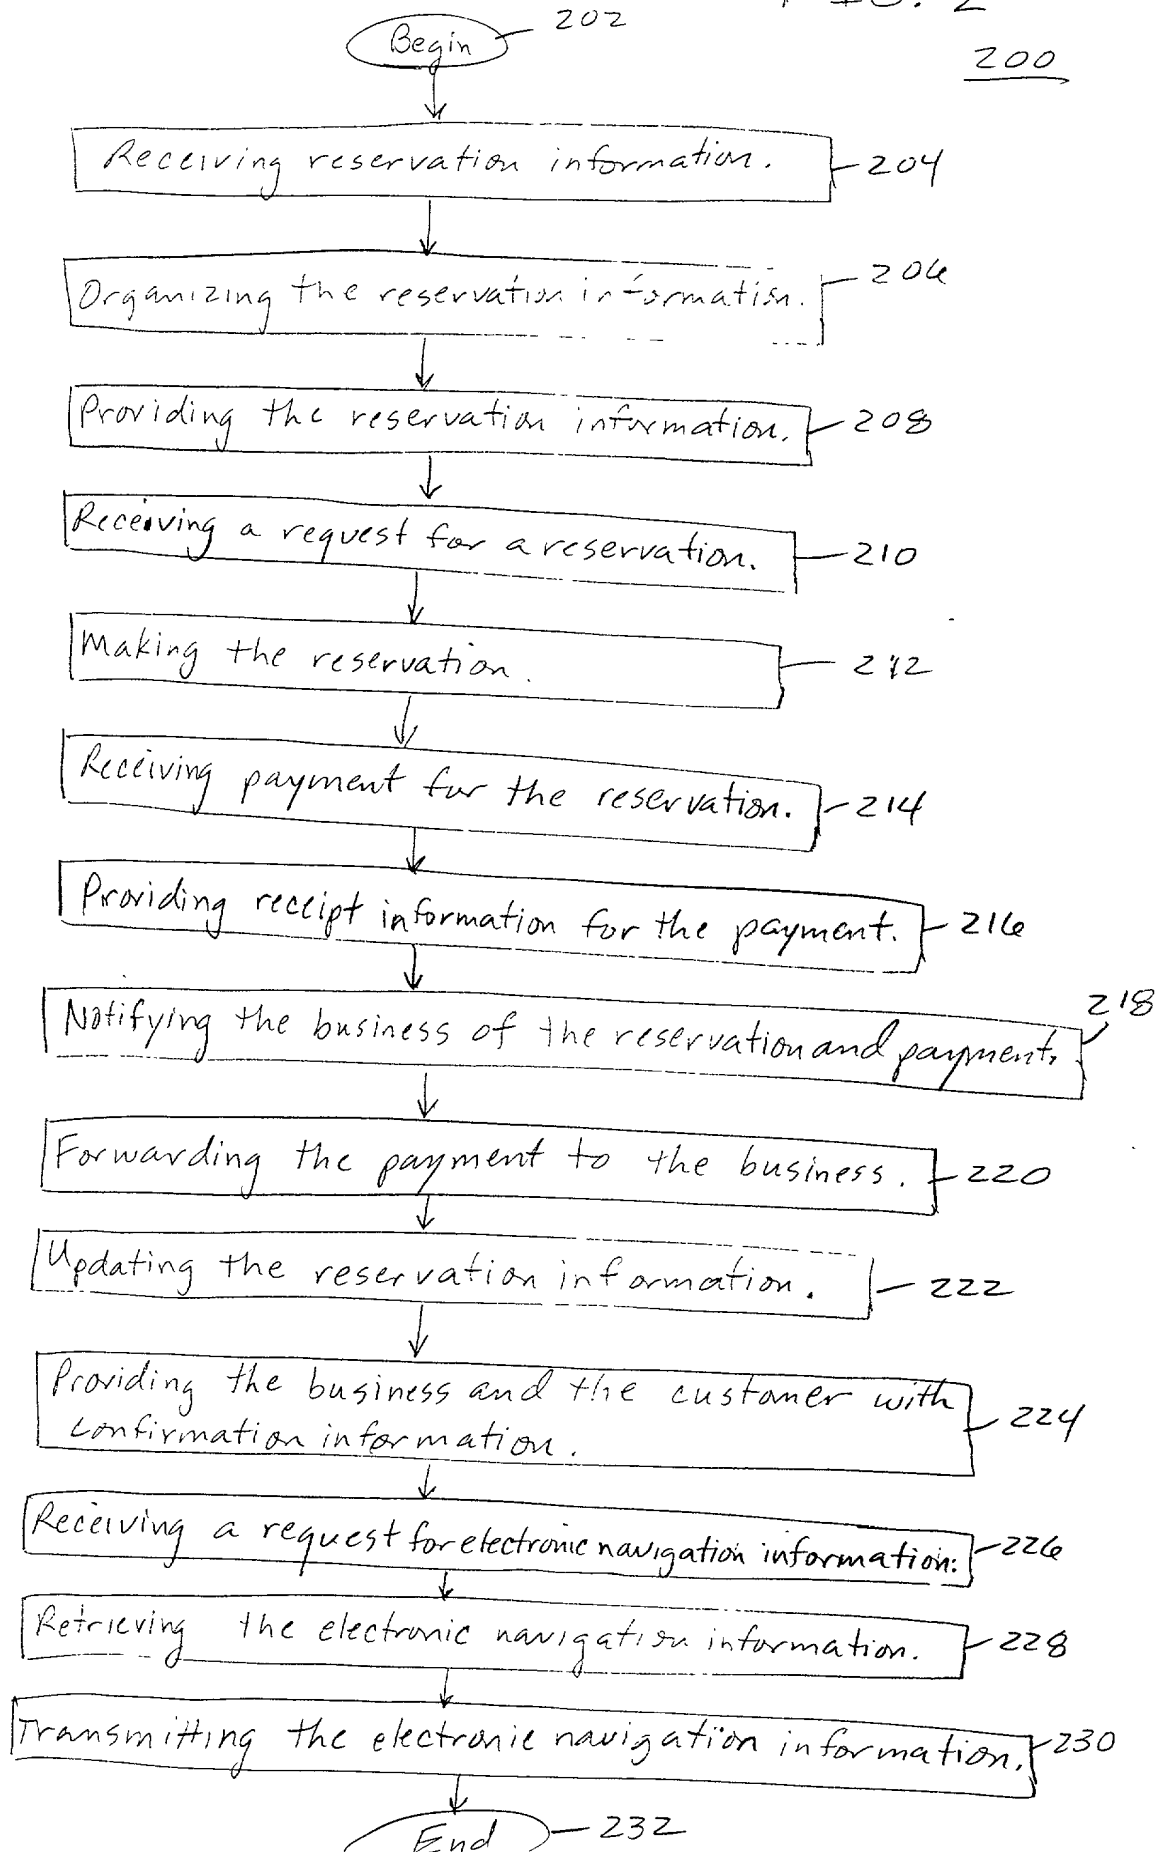 FIG. 2
200
Begin 202
Receiving reservation information. 204
Organizing the reservation information. 206
Providing the reservation information. 208
Receiving a request for a reservation. 210
Making the reservation. 212
Receiving payment for the reservation. 214
Providing receipt information for the payment. 216
Notifying the business of the reservation and payment. 218
Forwarding the payment to the business. 220
Updating the reservation information. 222
Providing the business and the customer with
confirmation information. 224
Receiving a request for electronic navigation information. 226
Retrieving the electronic navigation information. 228
Transmitting the electronic navigation information. 230
End 232